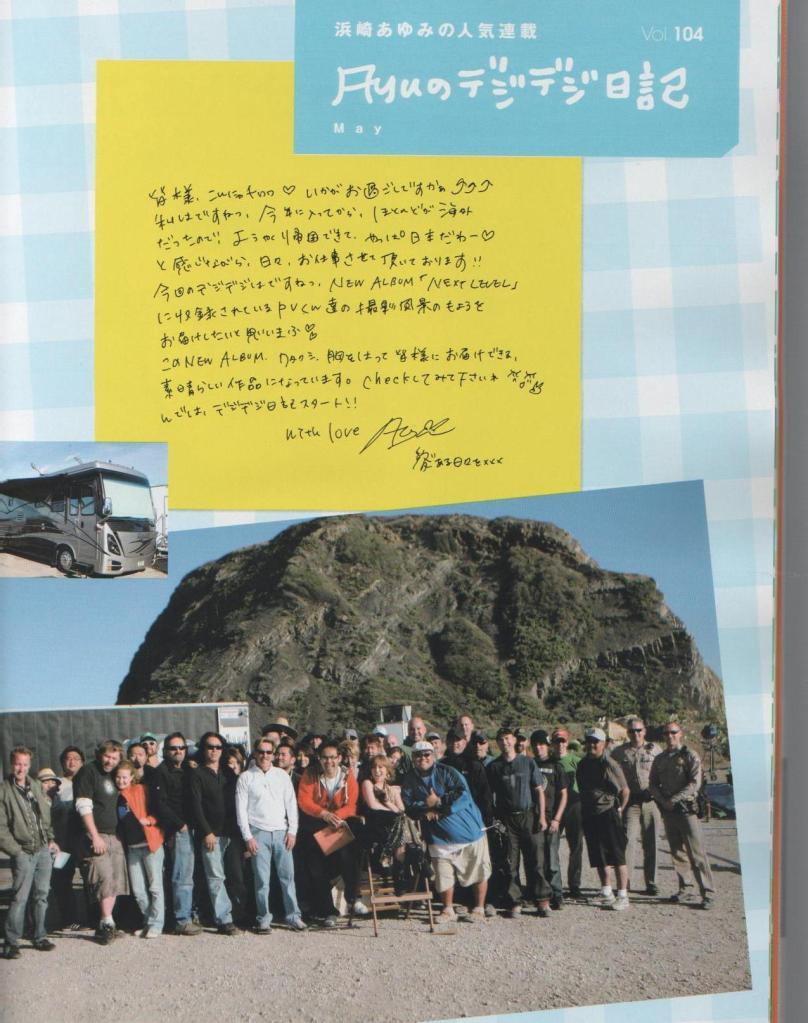 浜崎あゆみの人気連載
Vol. 104
Ayuのデジデジ日記
May
皆様、こんにちわっ♡ いかがお過ごしですかぁ⤴⤴⤴
私はですねっ、今年に入ってから、ほとんどが海外
だったので、ようやく帰国できて、やっぱ日本だわー♡
と感じながら、日々、お仕事させて頂いております!!
今回のデジデジはですねっ、NEW ALBUM「NEXT LEVEL」
に収録されているPVくん達の撮影風景のもようを
お届けしたいと思いまふ
このNEW ALBUM、ワタクシ、胸をはって皆様にお届けできる、
素晴らしい作品になっています。Checkしてみて下さいね
んでは、デジデジ日記スタート!!
with love
ある日々を×××